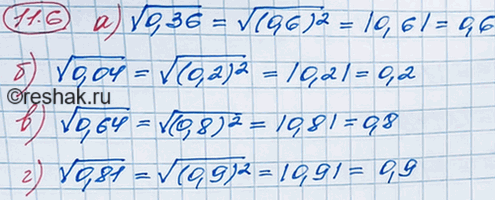 11.6 а) √0,36 = √(0,6)² = |0,6| = 0,6
б) √0,04 = √(0,2)² = |0,2| = 0,2
©reshak.ru
в) √0,64 = √(0,8)² = |0,8| = 0,8
г) √0,81 = √(0,9)² = |0,9| = 0,9